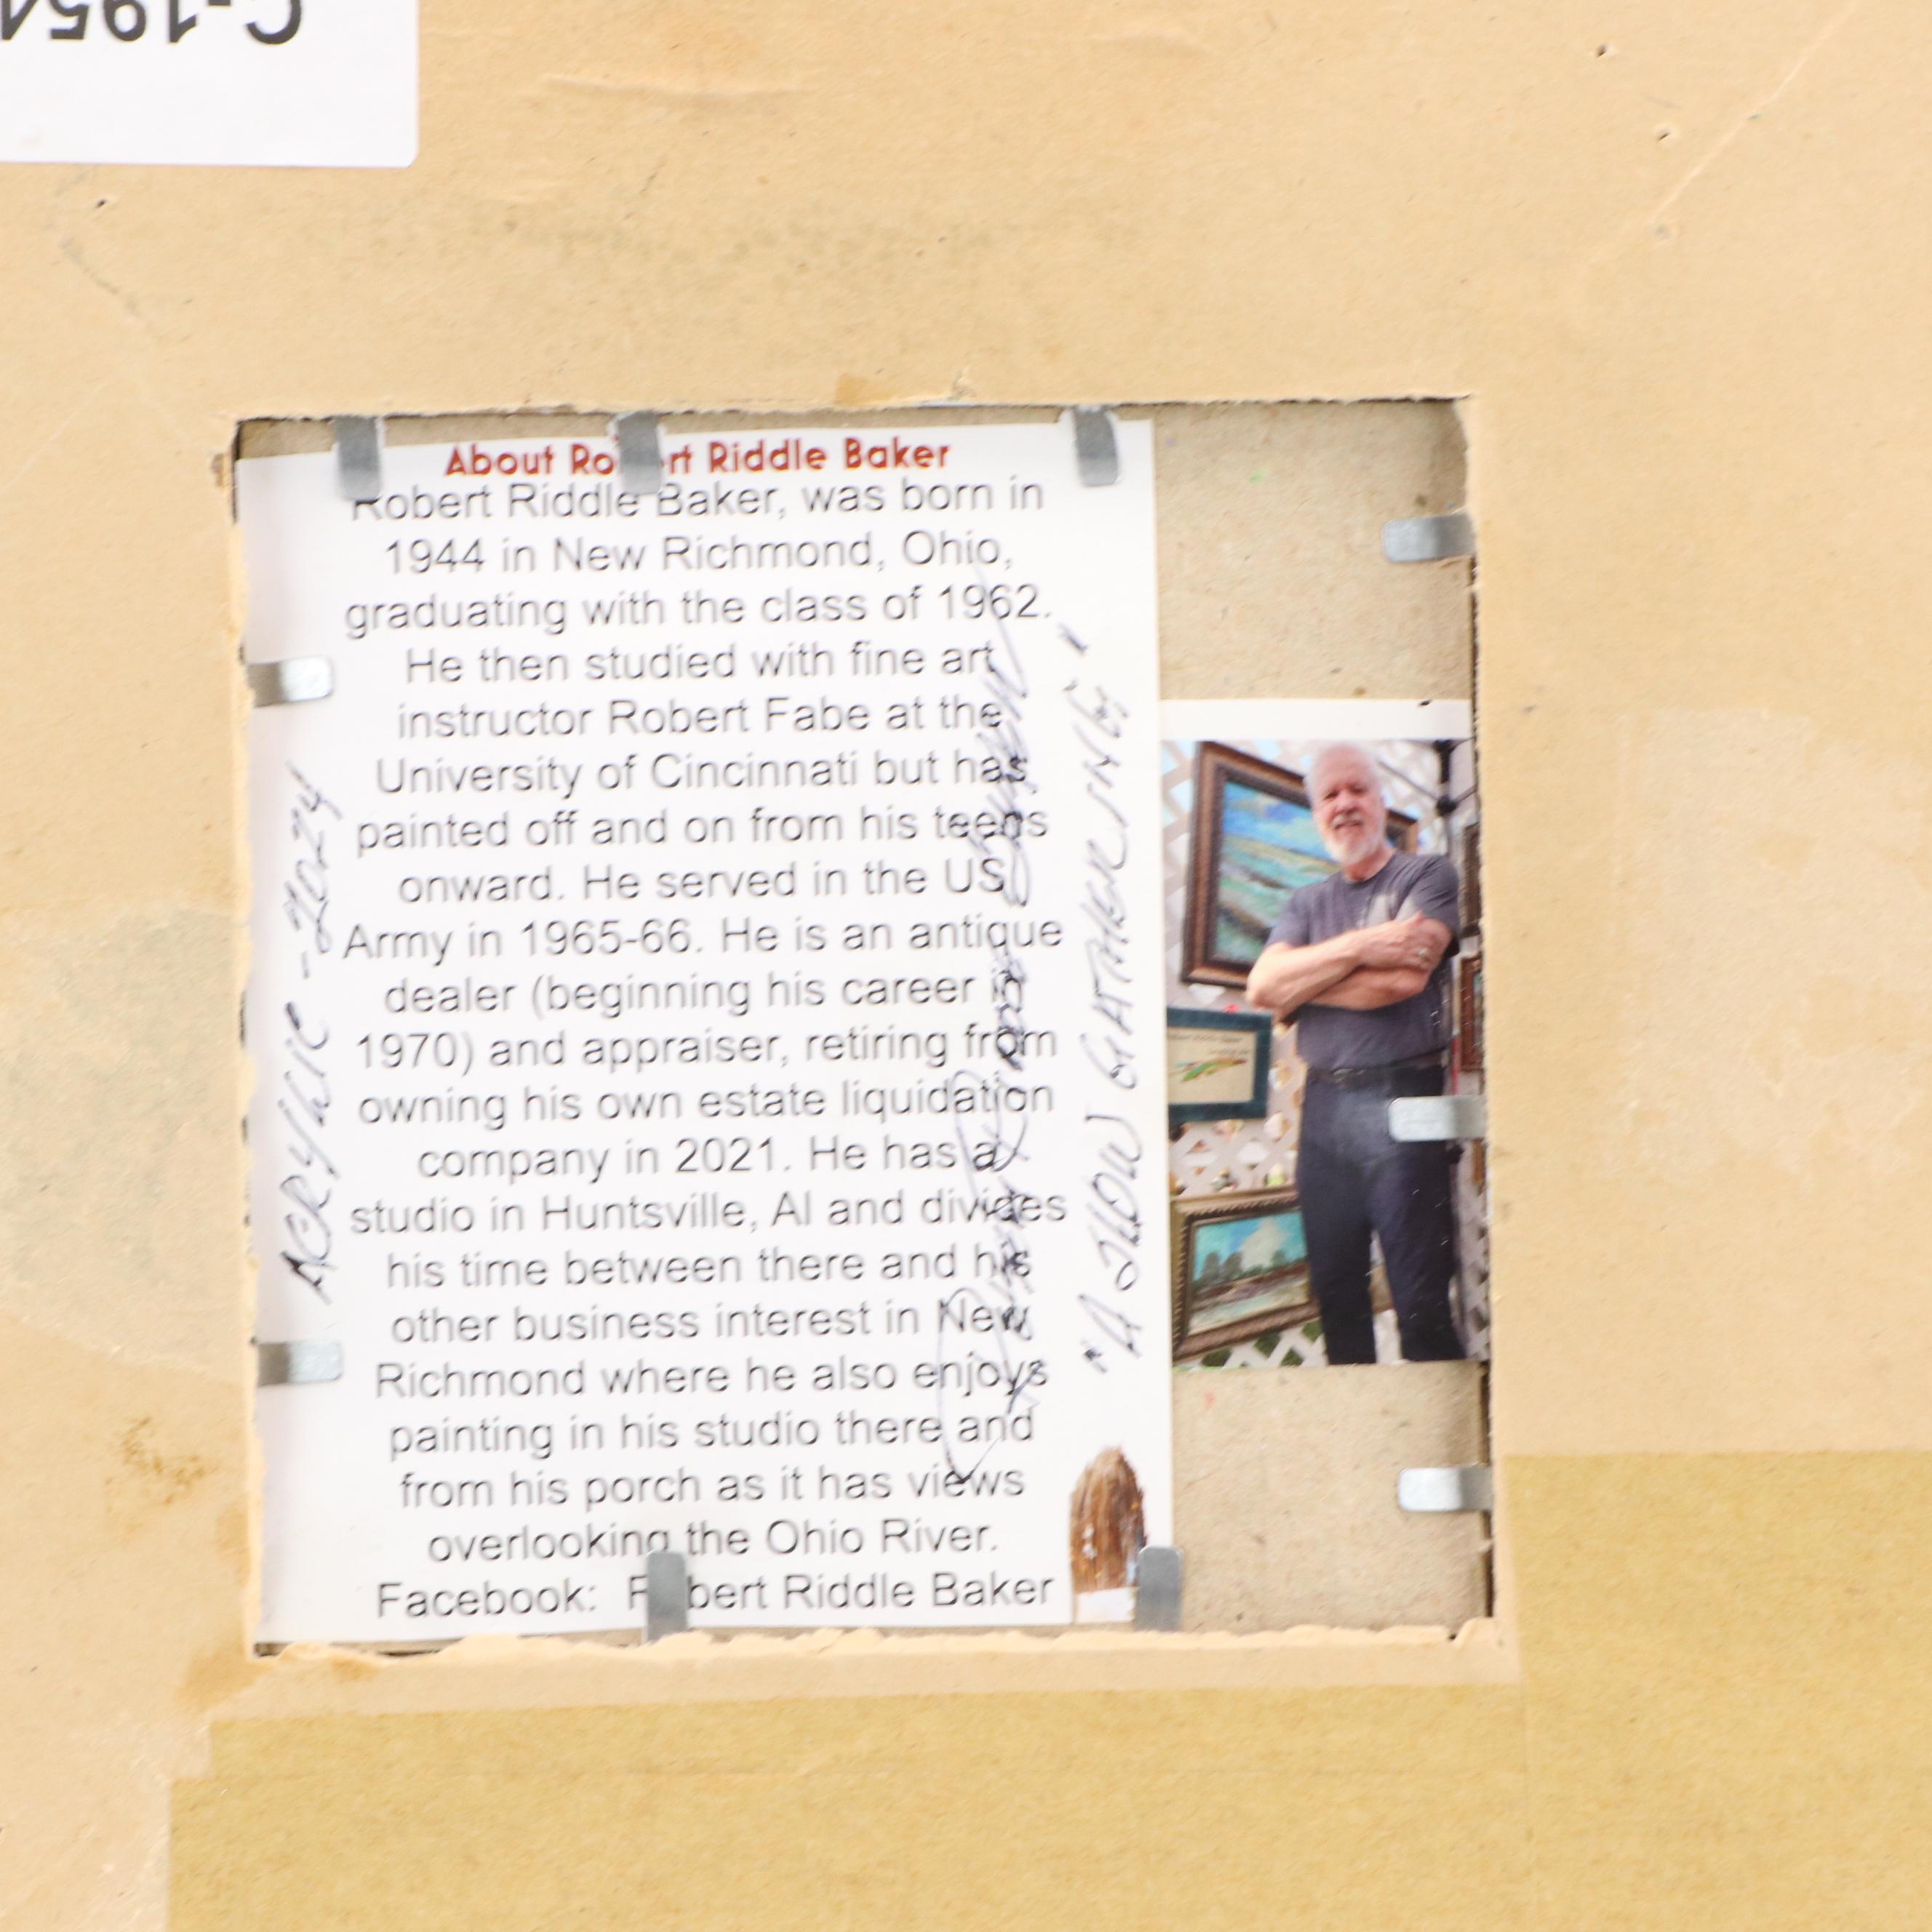 C-1954
About Robert Riddle Baker
Robert Riddle Baker, was born in
1944 in New Richmond, Ohio,
graduating with the class of 1962.
He then studied with fine art
instructor Robert Fabe at the
University of Cincinnati but has
painted off and on from his teens
onward. He served in the US
Army in 1965-66. He is an antique
dealer (beginning his career in
1970) and appraiser, retiring from
owning his own estate liquidation
company in 2021. He has a
studio in Huntsville, Al and divides
his time between there and his
other business interest in New
Richmond where he also enjoys
painting in his studio there and
from his porch as it has views
overlooking the Ohio River.
Facebook: Robert Riddle Baker
ACRYLIC - 2024
"A SLOW GATHERING"